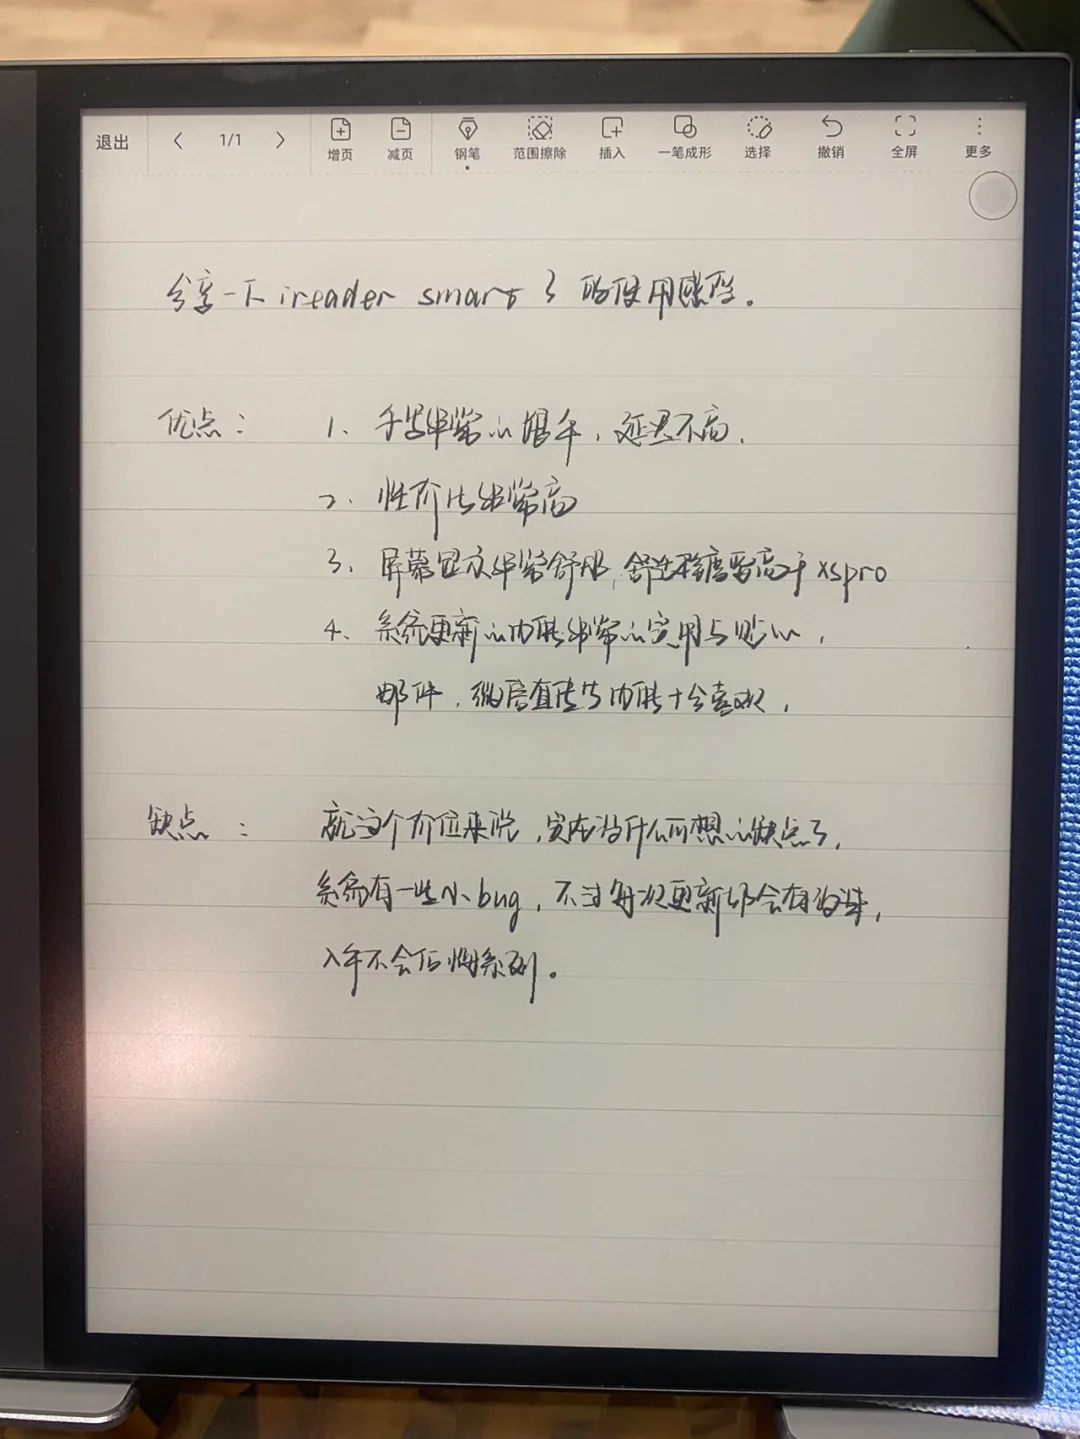 退出 < 1/1 > 增页 减页 钢笔 范围擦除 插入 一笔成形 选择 撤销 全屏 更多
分享一下 ireader smart 3 的使用感受。
优点： 1、手写非常的跟手，延迟不高，
2、性价比非常高
3、屏幕显示非常舒服，舒适程度要高于 xspro
4、系统更新的功能非常的实用与贴心，
邮件，微信直传等功能十分喜欢，
缺点： 就这个价位来说，实在没什么可想的缺点了，
系统有一些小bug，不过每次更新都会有改进，
入手不会后悔系列。